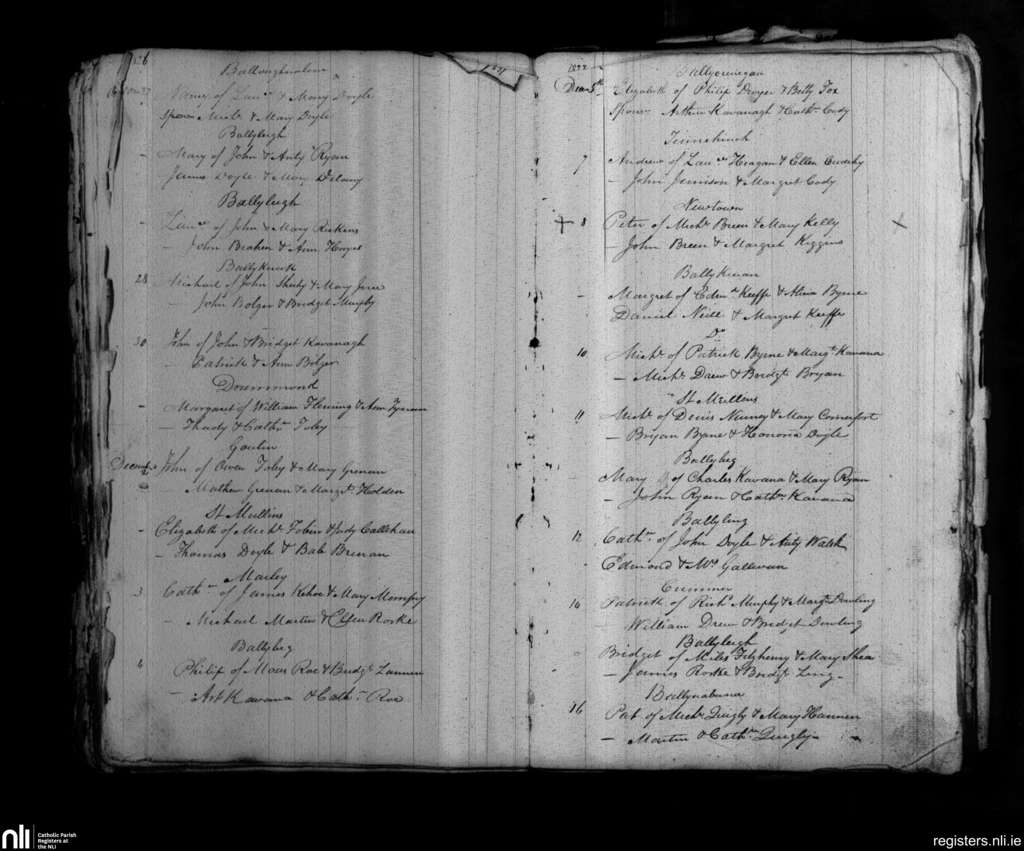 Nancy of Lawce & Mary Doyle
Spons Michl & Mary Doyle
Ballyleigh
- Mary of John & Anty Ryan
James Doyle & Mary Delany
Ballyleigh
- Lawce of John & Mary
- John & Ann
Ballyknock
28 Michael of John & Mary
- John Bolger & Bridget Murphy
30 John of John & Bridget Kavanagh
- Patrick & Ann Bolger
Drummond
- Margaret of William Fleming & Ann
- Thady & Cathn Foley
Goulin
December 2 John of Owen Foley & Mary Grenan
- Mathew Grenan & Margt Holden
St Mullins
- Elizabeth of Michl Tobin & Judy Callahan
- Thomas Doyle & Bab Brenan
Marley
3 Cathn of James Kehoe & Mary
- Michael Martin & Ellen Rorke
Ballybeg
4 Philip of Moses Roe & Bridgt Lannen
- Art Kavana & Cathn Roe
1822
Decr 5th Elizabeth of Philip Dwyer & Betty Fox
Spons Arthur Kavanagh & Cathn Cody
Tinnehinch
7 Andrew of Lawce Heagan & Ellen
- John Jemison & Margret Cody
Newtown
+ 8 Peter of Michl Breen & Mary Kelly
- John Breen & Margret Higgins
- Margret of Edmd Keeffe & Byrne
Daniel Neill & Margret Keeffe
Do
10 Michl of Patrick Byrne & Margt Kavana
- Michl Drew & Bridgt Bryan
St Mullins
11 Michl of Denis Neuney & Mary Commerfort
- Bryan Byrne & Honoria Doyle
Ballybeg
Mary of Charles Kavana & Mary Ryan
- John Ryan & Cathn Kavana
Ballyling
12 Cathn of John Doyle & Anty Walsh
Edmond & Mrs Gallavan
Cummer
14 Patrick of Richd Murphy & Margt Dowling
William Drew & Bridget Dowling
Ballyleigh
Bridget of Miles Fitzhenry & Mary Shea
- James Rorke & Bridgt Ling
Ballynabuna
16 Pat of Michl Quigly & Mary Hannen
- Martin & Cathn Quigly
nli Catholic Parish
Registers at
the NLI
registers.nli.ie